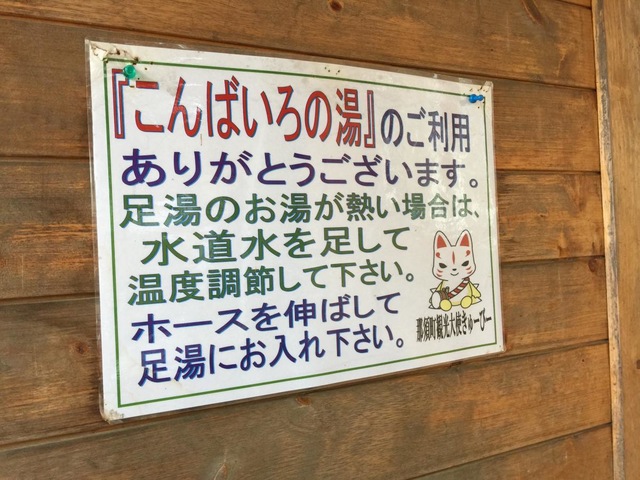 『こんばいろの湯』のご利用
ありがとうございます。
足湯のお湯が熱い場合は、
水道水を足して
温度調節して下さい。
ホースを伸ばして
足湯にお入れ下さい。
那須町観光大使きゅーびー